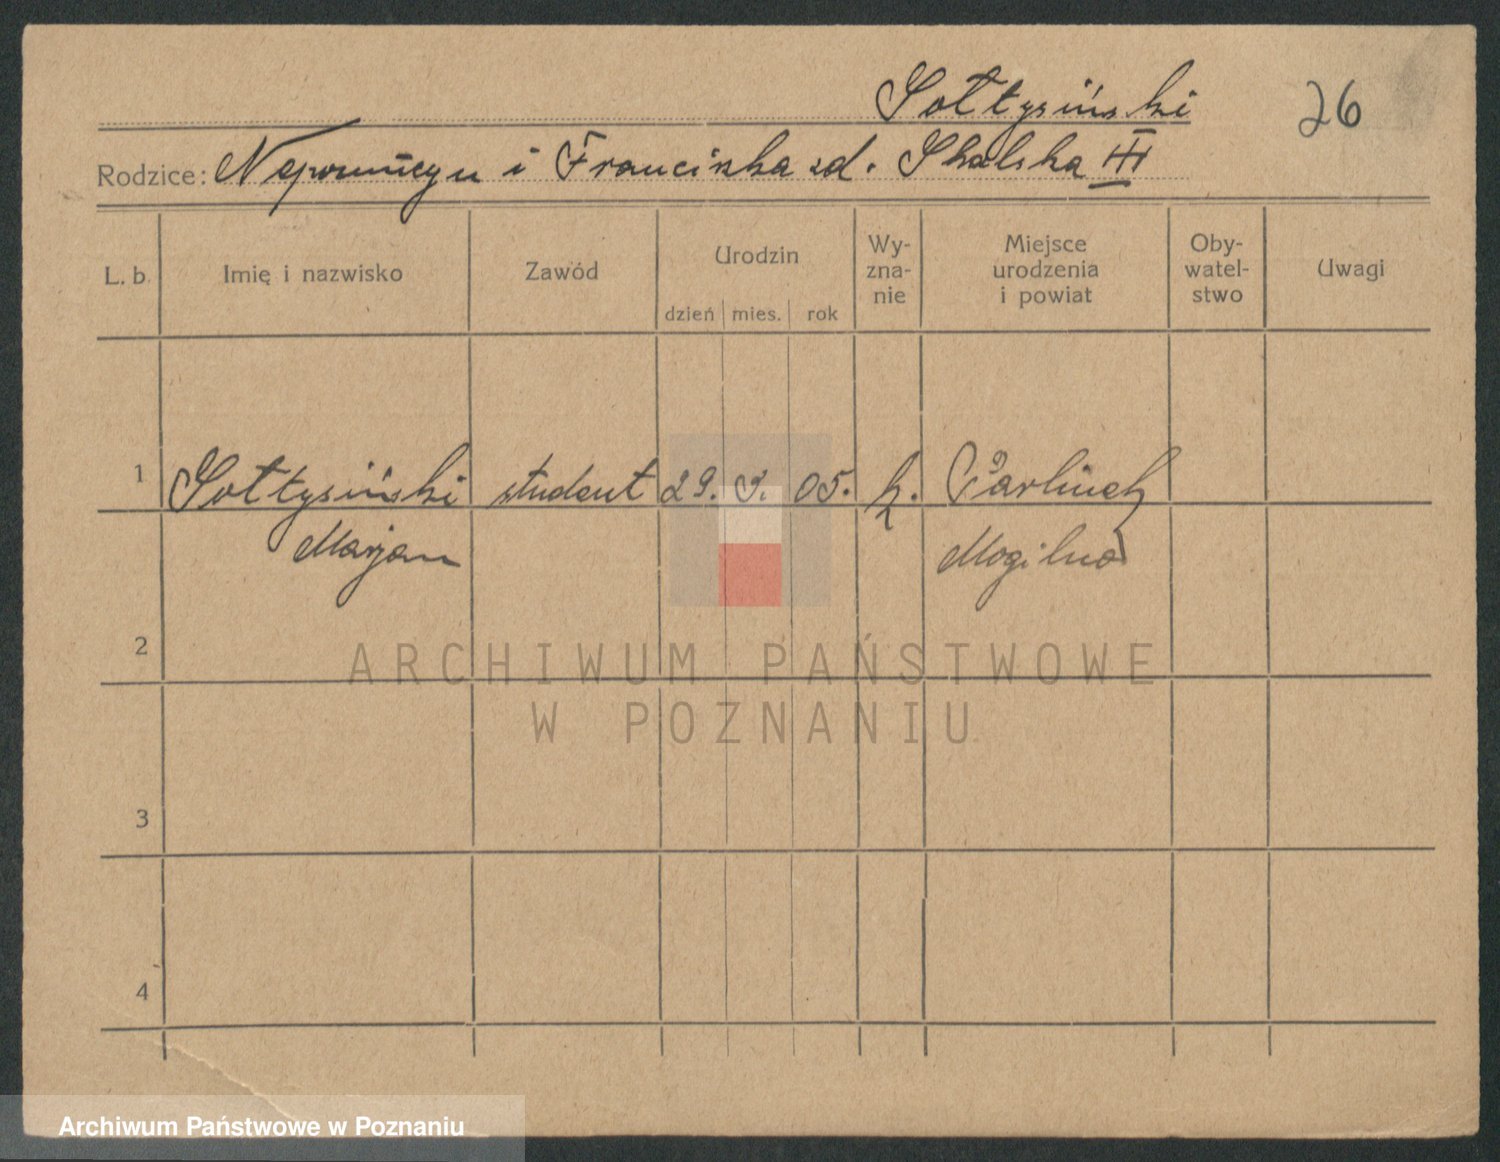 Sołtysiński
26
Rodzice: Nepomucyn i Franciszka zd. Skalska III
L. b.
Imię i nazwisko
Zawód
Urodzin
dzień mies. rok
Wy-
zna-
nie
Miejsce
urodzenia
i powiat
Oby-
watel-
stwo
Uwagi
1 Sołtysiński student 29. 05. k.
Marjan Mogilno
2
ARCHIWUM PAŃSTWOWE
W POZNANIU
3
4
Archiwum Państwowe w Poznaniu